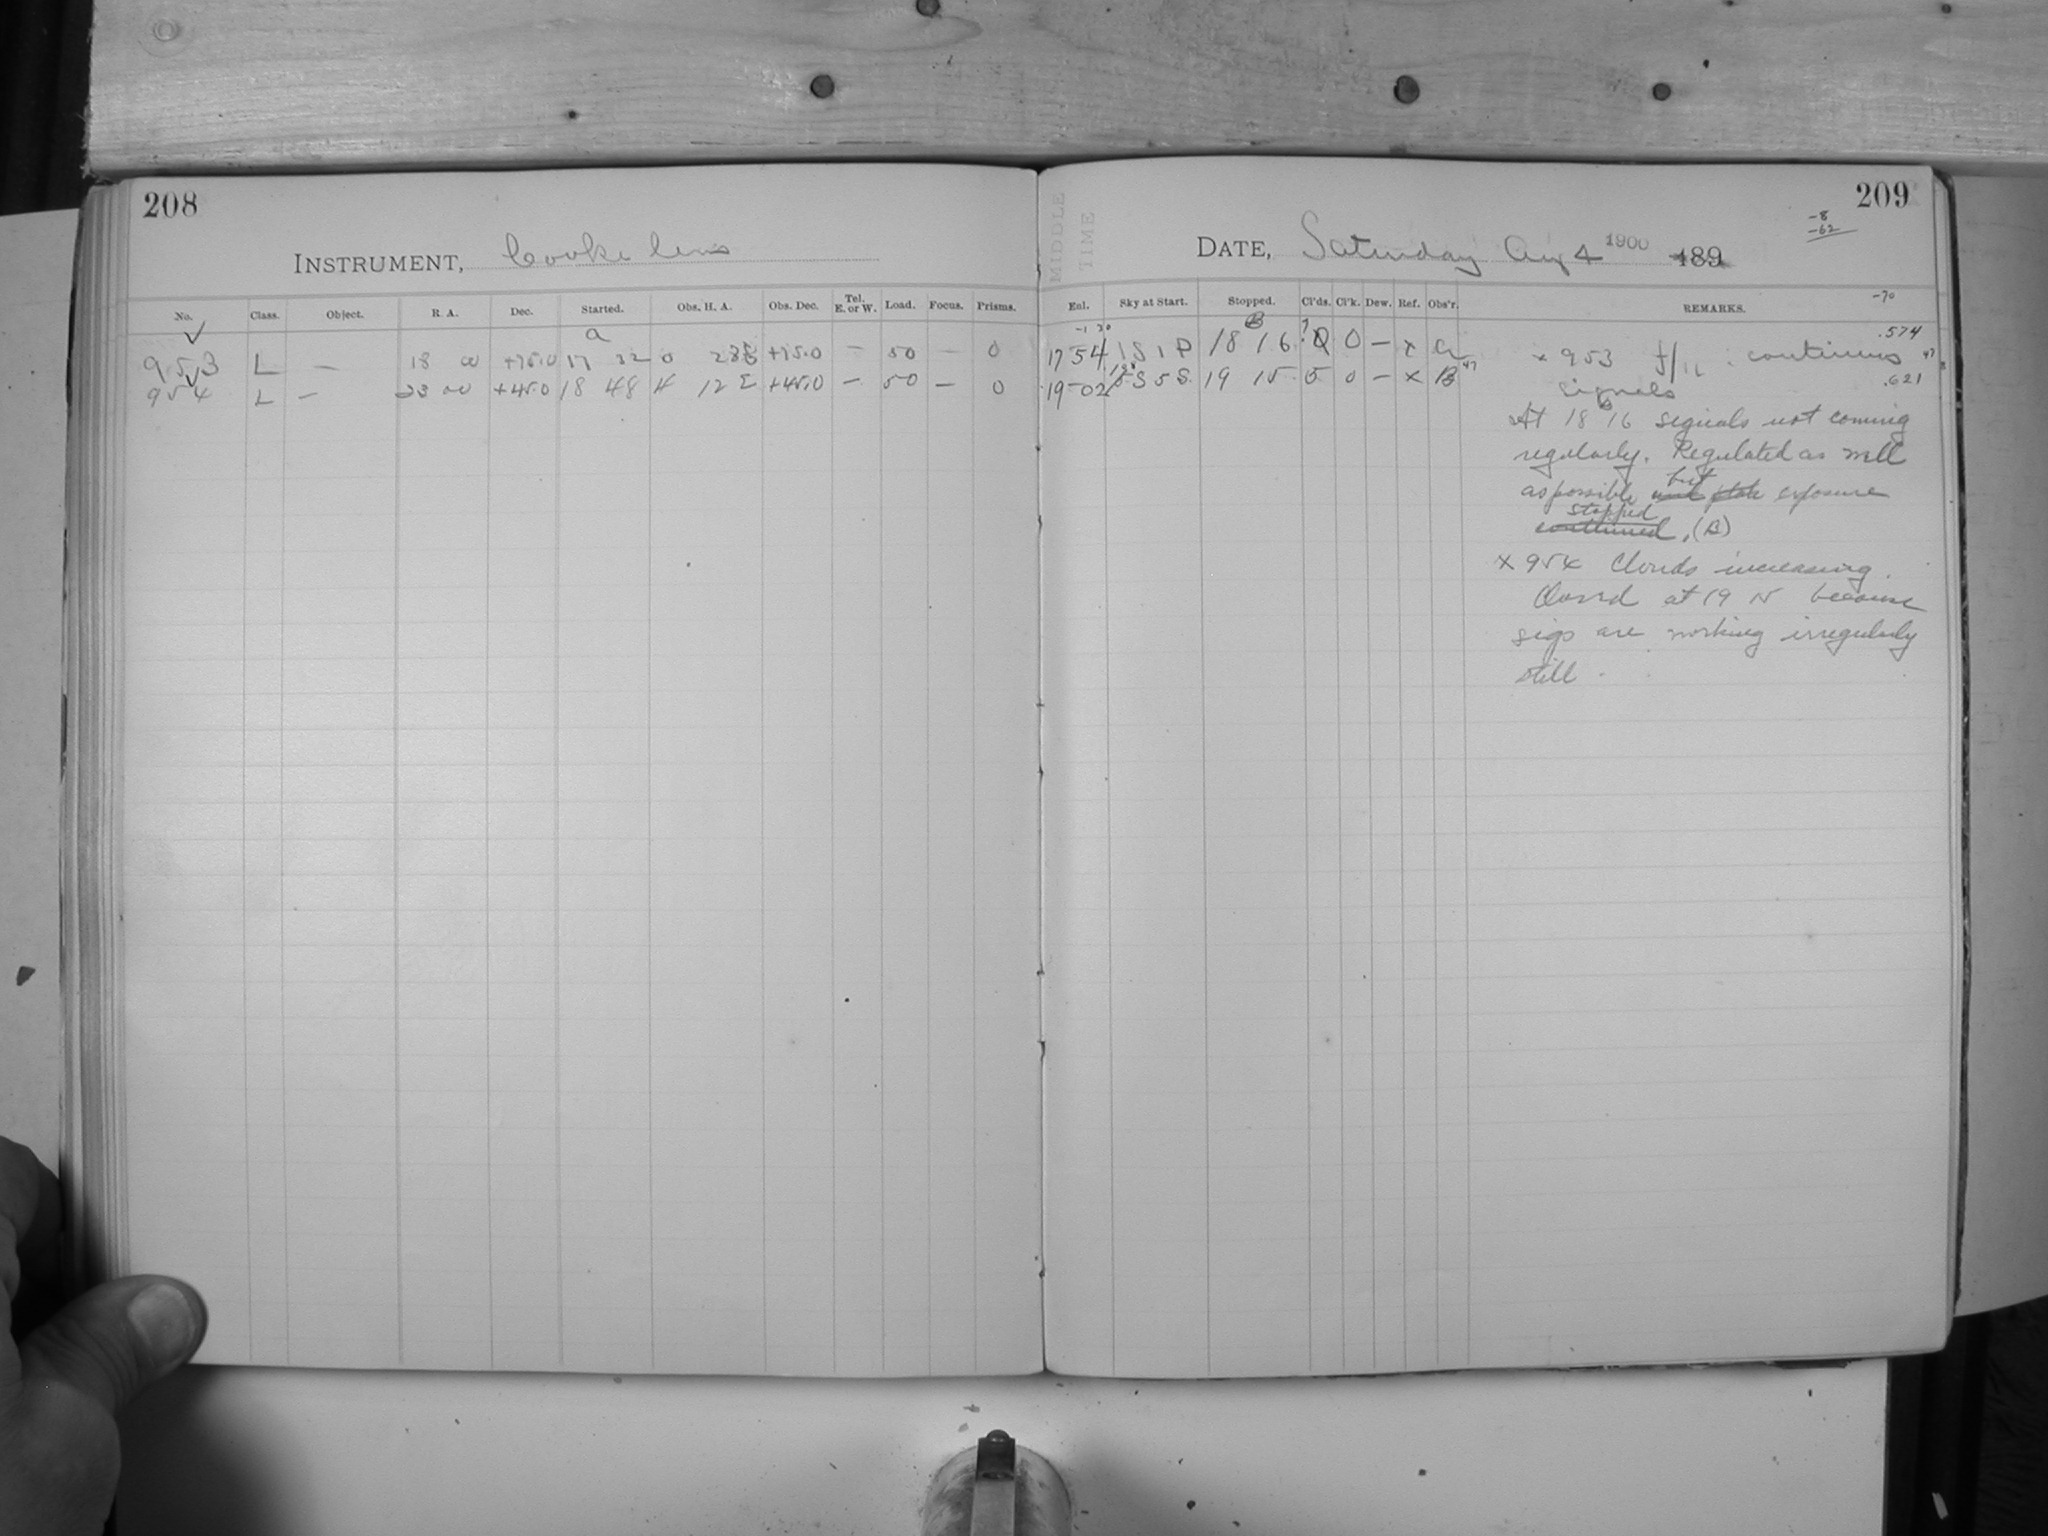 208
INSTRUMENT, Cooke lens
No. Class. Object. R. A. Dec. Started. Obs. H. A. Obs. Dec. Tel. E. or W. Load. Focus. Prisms.
a
953 L — 18 00 +75.0 17 32 0 28E +75.0 — 50 — 0
954 L — 23 00 +45.0 18 48 4 12 E +45.0 — 50 — 0
209
-8
-62
MIDDLE
TIME
DATE, Saturday Aug 4 1900 189
-70
Enl. Sky at Start. Stopped. Cl'ds. Cl'k. Dew. Ref. Obs'r. REMARKS.
B
17 54 1 S 1 P 18 16 0 — x a x 953 f/12 . continuous .574
47
19-02 5 S 5 S 19 15 5 0 — x B 47 signals .621
B
At 18 16 signals not coming
regularly. Regulated as well
as possible but exposure
stopped
continued, (B)
x 954 Clouds increasing.
Closed at 19 15 because
sigs are working irregularly
still.